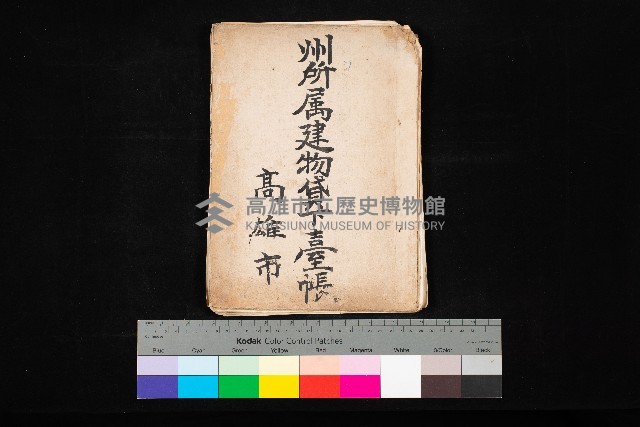 州所属建物貸下臺帳
高雄市
高雄市立歷史博物館
KAOHSIUNG MUSEUM OF HISTORY
Kodak Color Control Patches
Blue Cyan Green Yellow Red Magenta White 3/Color Black